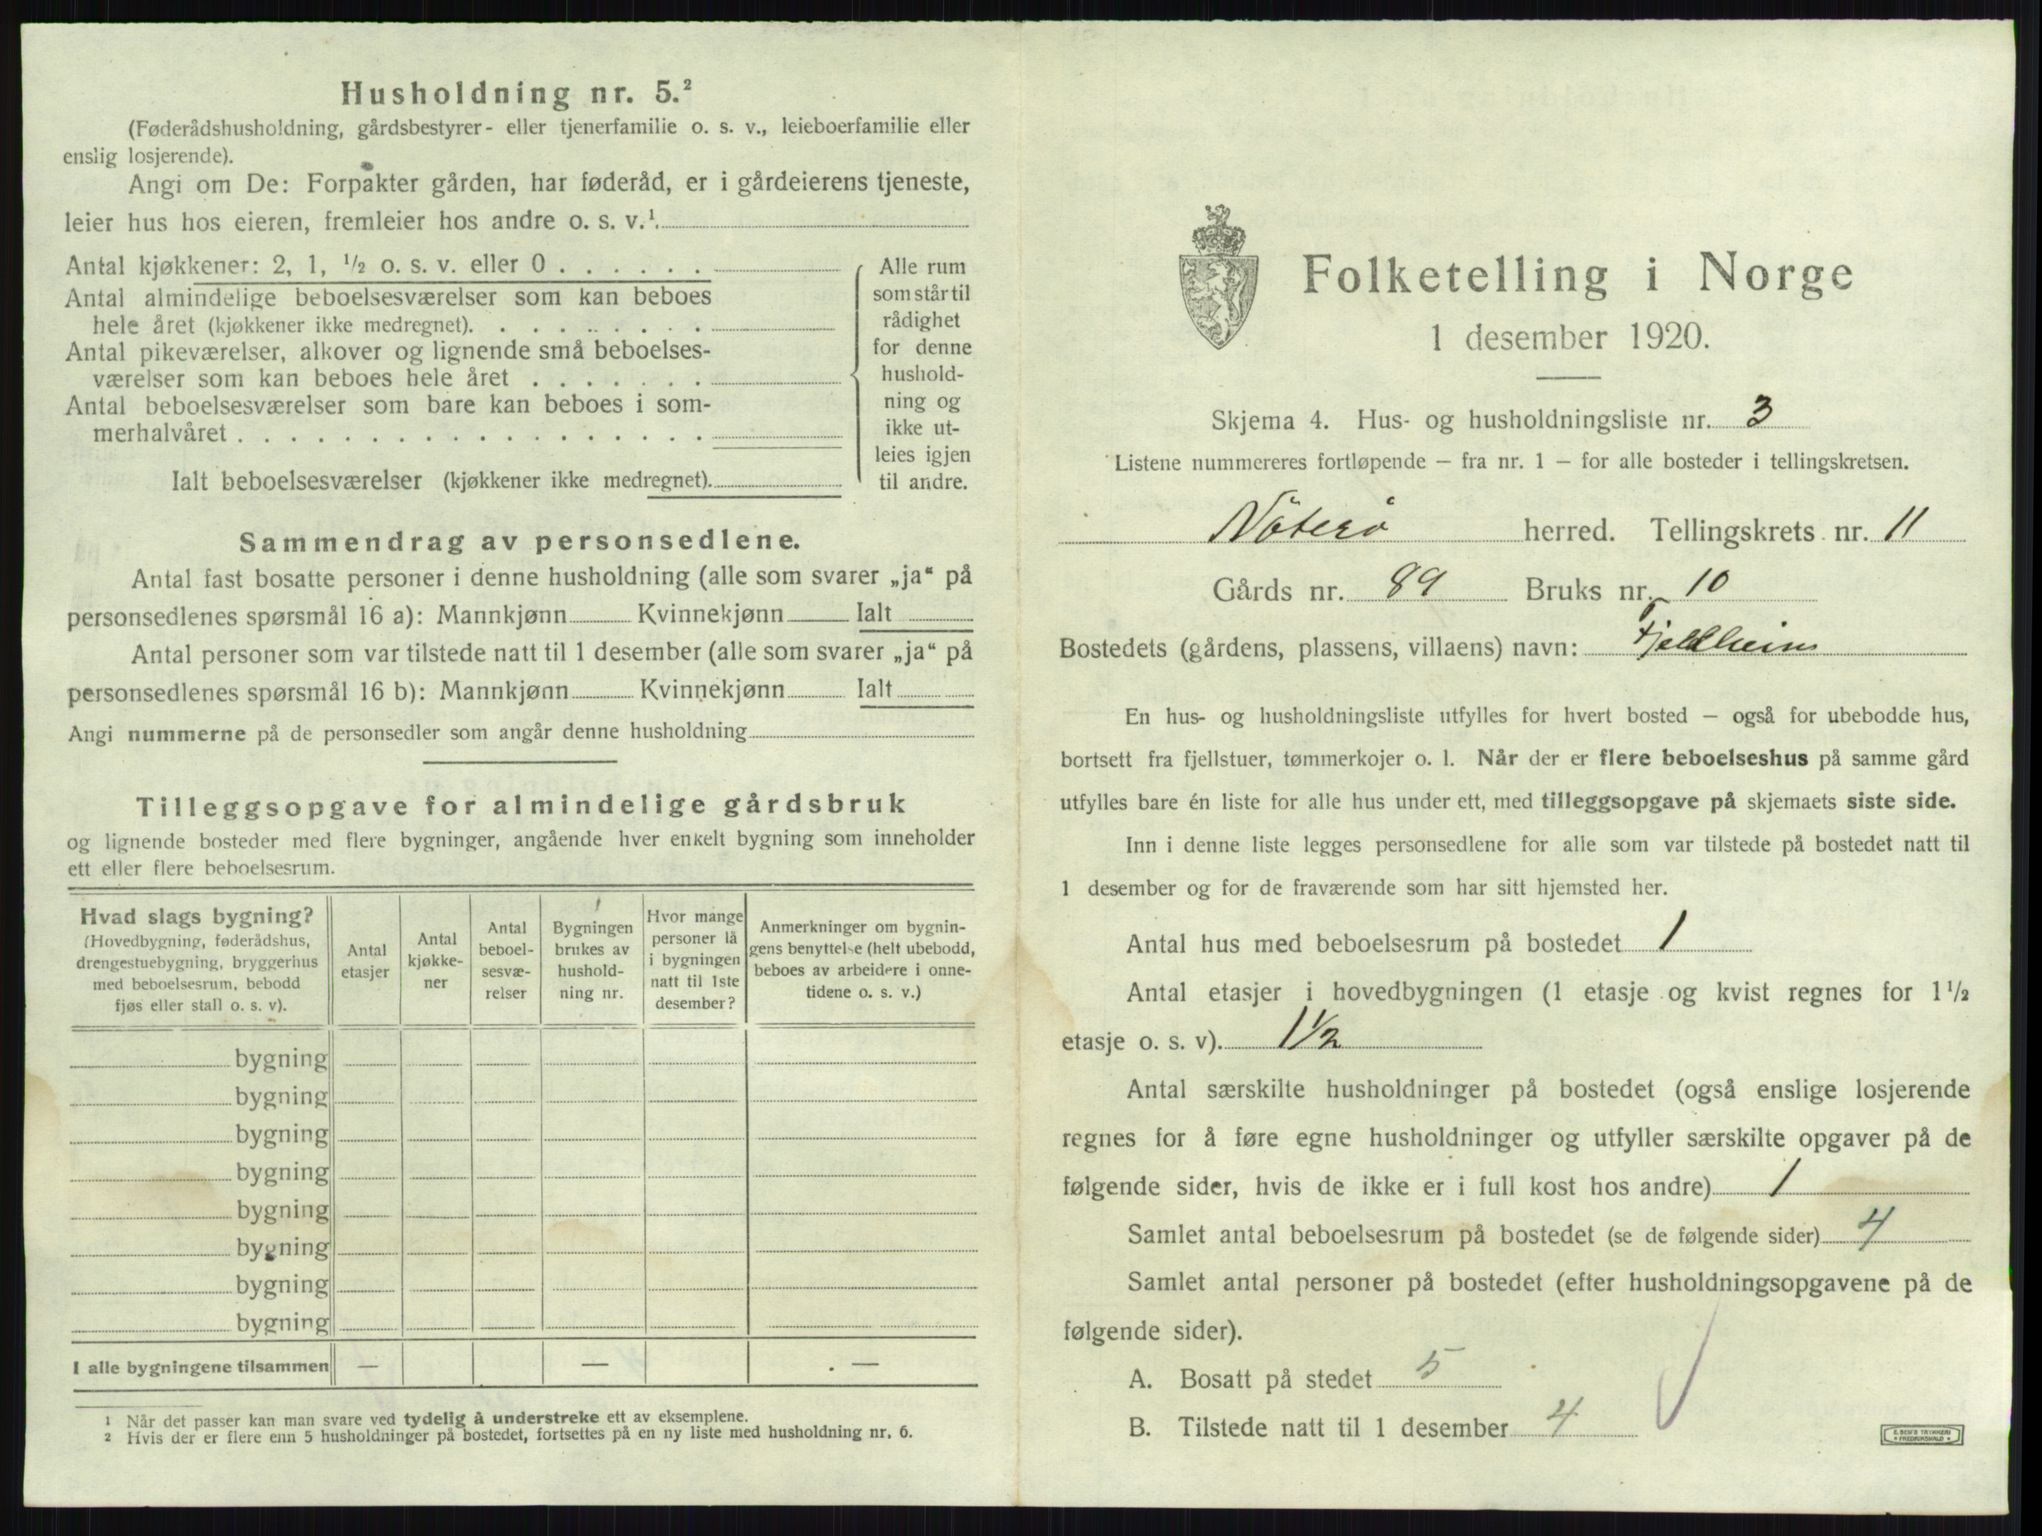 Husholdning nr. 5.²
(Føderådshusholdning, gårdsbestyrer- eller tjenerfamilie o. s. v., leieboerfamilie eller
enslig losjerende).
Angi om De: Forpakter gården, har føderåd, er i gårdeierens tjeneste,
leier hus hos eieren, fremleier hos andre o. s. v.¹
Antal kjøkkener: 2, 1, ½ o. s. v. eller 0
Antal almindelige beboelsesværelser som kan beboes
hele året (kjøkkener ikke medregnet).
Antal pikeværelser, alkover og lignende små beboelses-
værelser som kan beboes hele året
Antal beboelsesværelser som bare kan beboes i som-
merhalvåret
Ialt beboelsesværelser (kjøkkener ikke medregnet).
Alle rum
som står til
rådighet
for denne
hushold-
ning og
ikke ut-
leies igjen
til andre.
Sammendrag av personsedlene.
Antal fast bosatte personer i denne husholdning (alle som svarer „ja“ på
personsedlenes spørsmål 16 a): Mannkjønn Kvinnekjønn Ialt
Antal personer som var tilstede natt til 1 desember (alle som svarer „ja“ på
personsedlenes spørsmål 16 b): Mannkjønn Kvinnekjønn Ialt
Angi nummerne på de personsedler som angår denne husholdning
Tilleggsopgave for almindelige gårdsbruk
og lignende bosteder med flere bygninger, angående hver enkelt bygning som inneholder
ett eller flere beboelsesrum.
Hvad slags bygning?
(Hovedbygning, føderådshus,
drengestuebygning, bryggerhus
med beboelsesrum, bebodd
fjøs eller stall o. s. v).
Antal
etasjer
Antal
kjøkke-
ner
Antal
beboel-
sesvæ-
relser
Bygningen
brukes av
hushold-
ning nr.
Hvor mange
personer lå
i bygningen
natt til 1ste
desember?
Anmerkninger om bygnin-
gens benyttelse (helt ubebodd,
beboes av arbeidere i onne-
tidene o. s. v.)
bygning
bygning
bygning
bygning
bygning
bygning
bygning
bygning
I alle bygningene tilsammen — — —
¹ Når det passer kan man svare ved tydelig å understreke ett av eksemplene.
² Hvis der er flere enn 5 husholdninger på bostedet, fortsettes på en ny liste med husholdning nr. 6.
Folketelling i Norge
1 desember 1920.
Skjema 4. Hus- og husholdningsliste nr. 3
Listene nummereres fortløpende — fra nr. 1 — for alle bosteder i tellingskretsen.
Nöterö herred. Tellingskrets nr. 11
Gårds nr. 89 Bruks nr. 10
Bostedets (gårdens, plassens, villaens) navn: Fjeldheim
En hus- og husholdningsliste utfylles for hvert bosted — også for ubebodde hus,
bortsett fra fjellstuer, tømmerkojer o. l. Når der er flere beboelseshus på samme gård
utfylles bare én liste for alle hus under ett, med tilleggsopgave på skjemaets siste side.
Inn i denne liste legges personsedlene for alle som var tilstede på bostedet natt til
1 desember og for de fraværende som har sitt hjemsted her.
Antal hus med beboelsesrum på bostedet 1
Antal etasjer i hovedbygningen (1 etasje og kvist regnes for 1½
etasje o. s. v). 1½
Antal særskilte husholdninger på bostedet (også enslige losjerende
regnes for å føre egne husholdninger og utfyller særskilte opgaver på de
følgende sider, hvis de ikke er i full kost hos andre) 1
Samlet antal beboelsesrum på bostedet (se de følgende sider) 4
Samlet antal personer på bostedet (efter husholdningsopgavene på de
følgende sider).
A. Bosatt på stedet 5
B. Tilstede natt til 1 desember 4